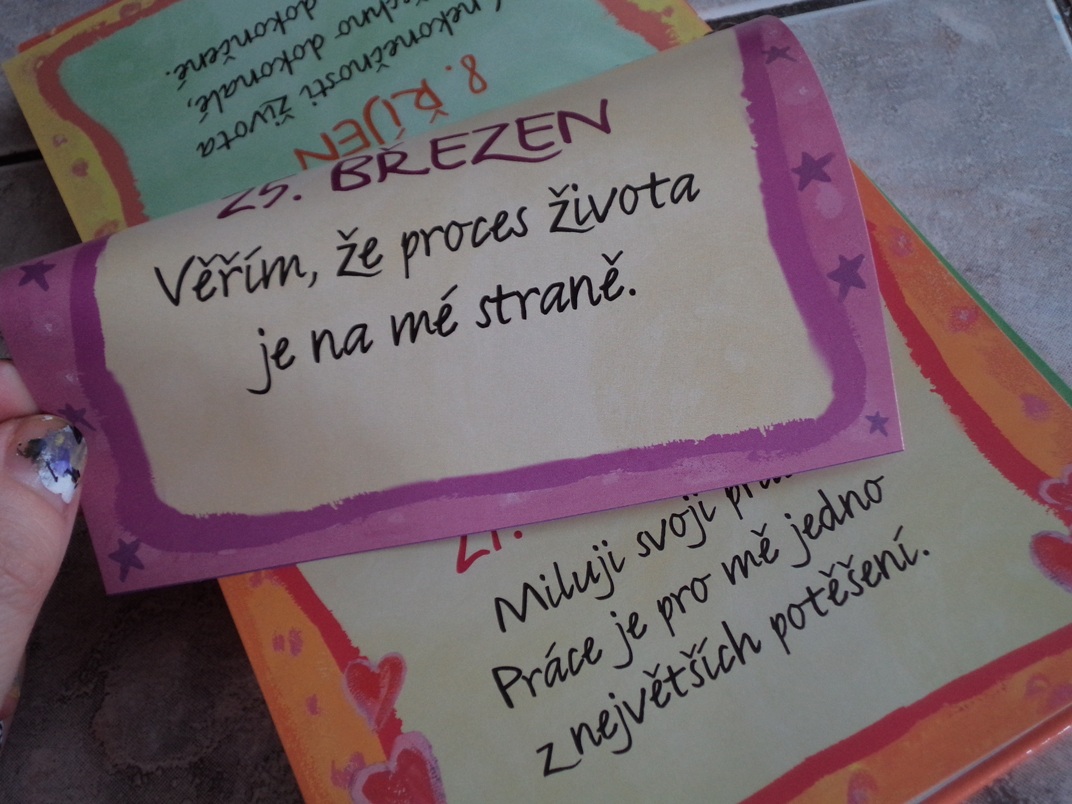 8. ŘÍJEN
nekonečnosti života
dokonalé,
dokončené.
25. BŘEZEN
Věřím, že proces života
je na mé straně.
Miluji svoji
Práce je pro mě jedno
z největších potěšení.